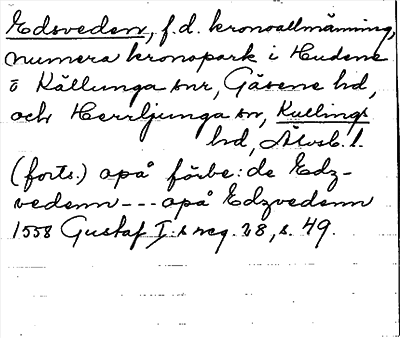 Edsveden, f.d. kronoallmänning,
numera kronopark i Hudene
o Källunga snr, Gäsene hd,
och Herrljunga sn, Kullings
hd, Älvsb. l.
(forts.) opå förbe: de Edz-
vedenn --- opå Edzvedenn
1558 Gustaf I:s reg. 28, s. 49.